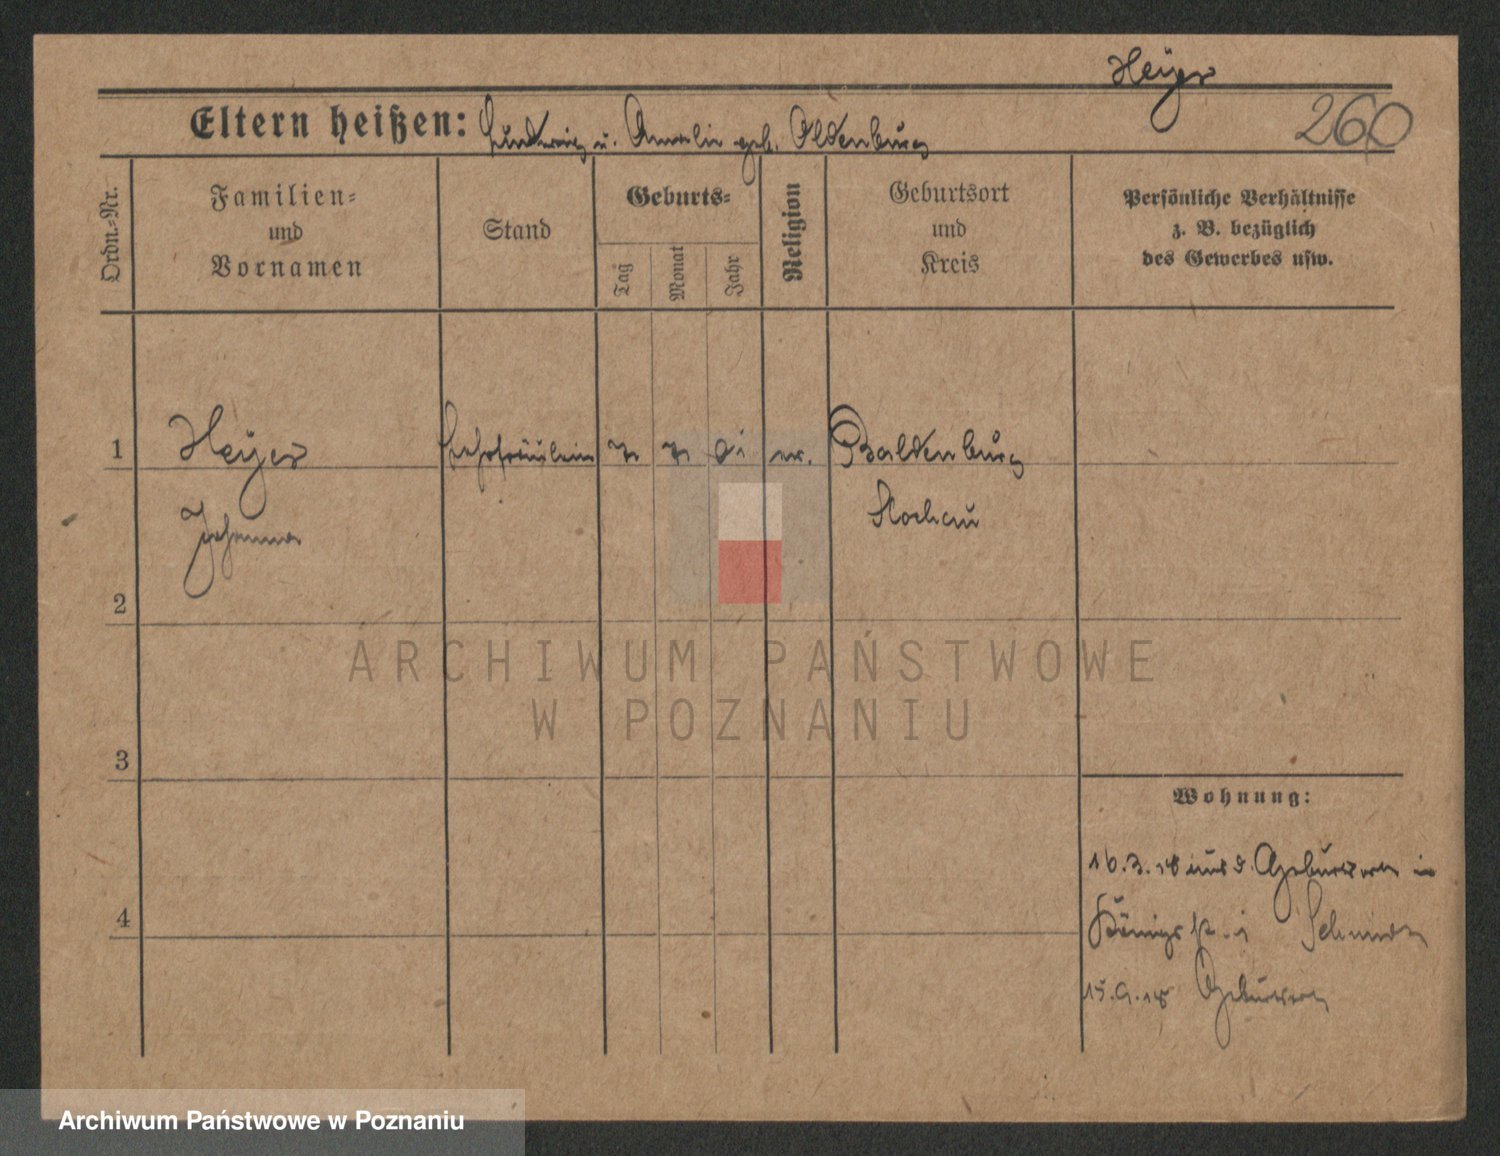 Heyer
260
Eltern heißen: Ludwig u. Amalie geb. Oldenburg
Ordn.-Nr.
Familien-
und
Vornamen
Stand
Geburts-
Tag
Monat
Jahr
Religion
Geburtsort
und
Kreis
Persönliche Verhältnisse
z. B. bezüglich
des Gewerbes usw.
1 Heyer Lehrfräulein ev. Baldenburg
Johanna Slochau
2
ARCHIWUM PAŃSTWOWE
W POZNANIU
3
Wohnung:
16.3.18 aus in
4 Königstr. Schmidt
15.9.18
Archiwum Państwowe w Poznaniu